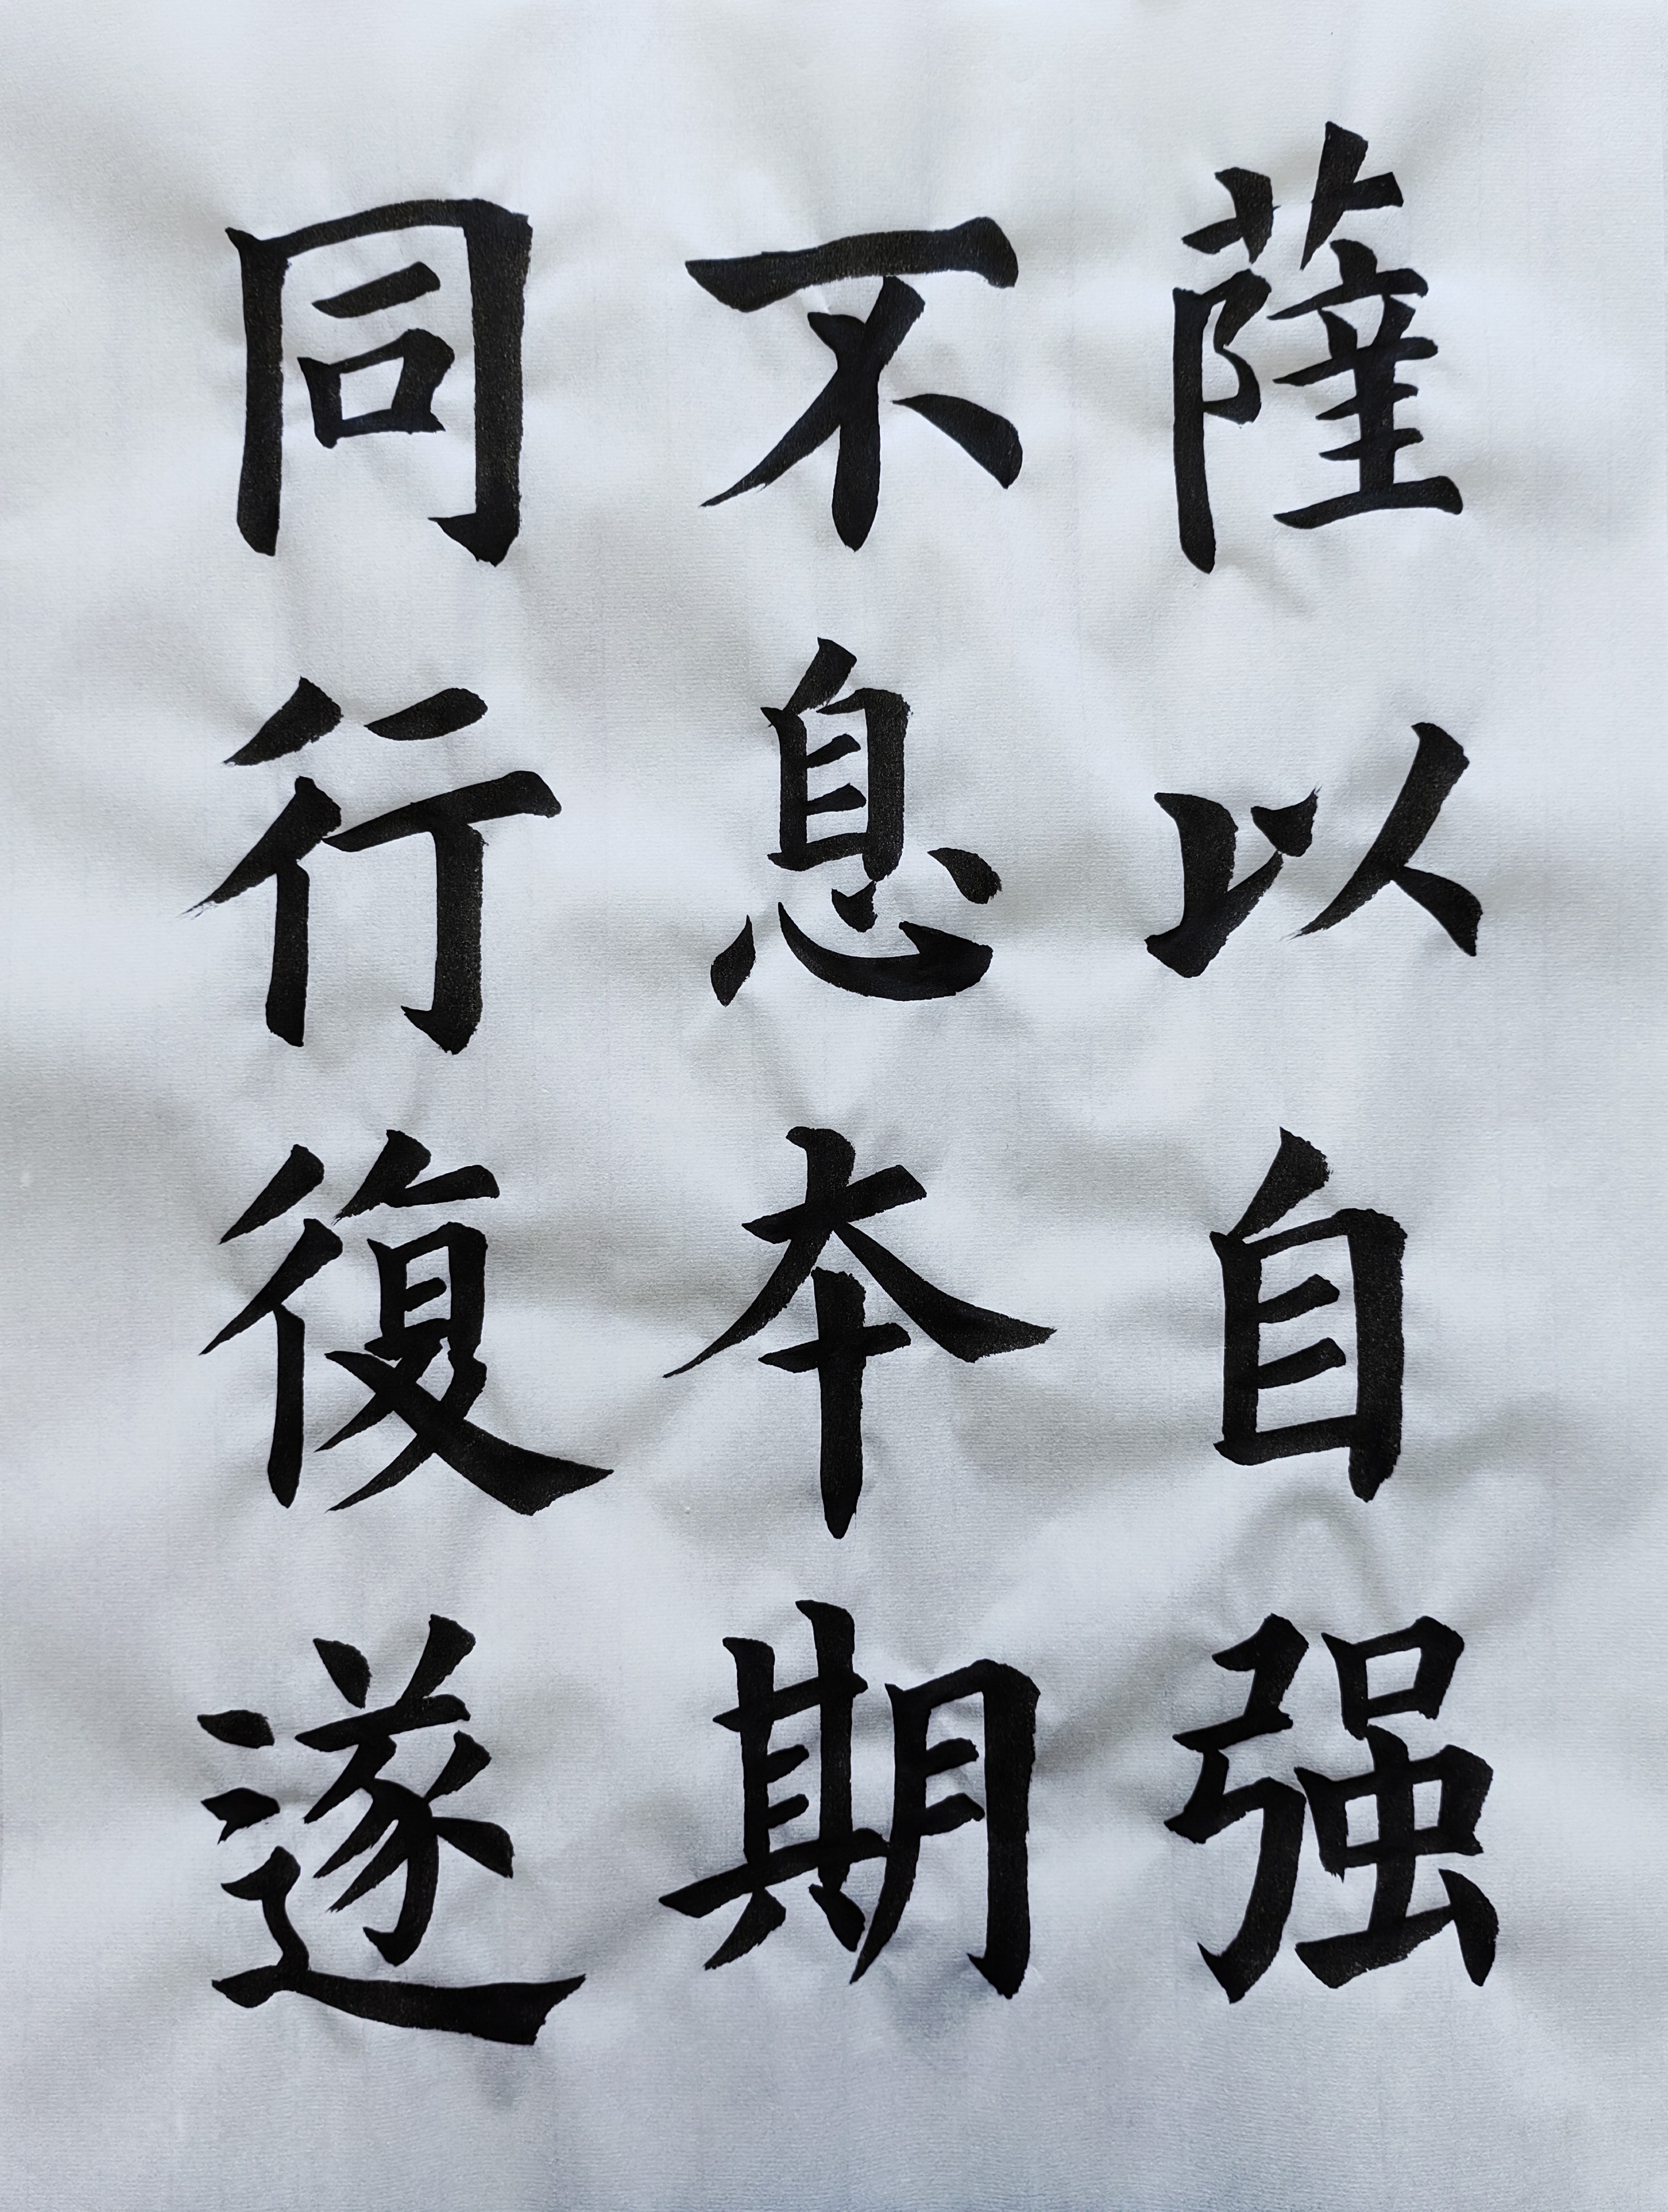 薩以自强
不息本期
同行復遂